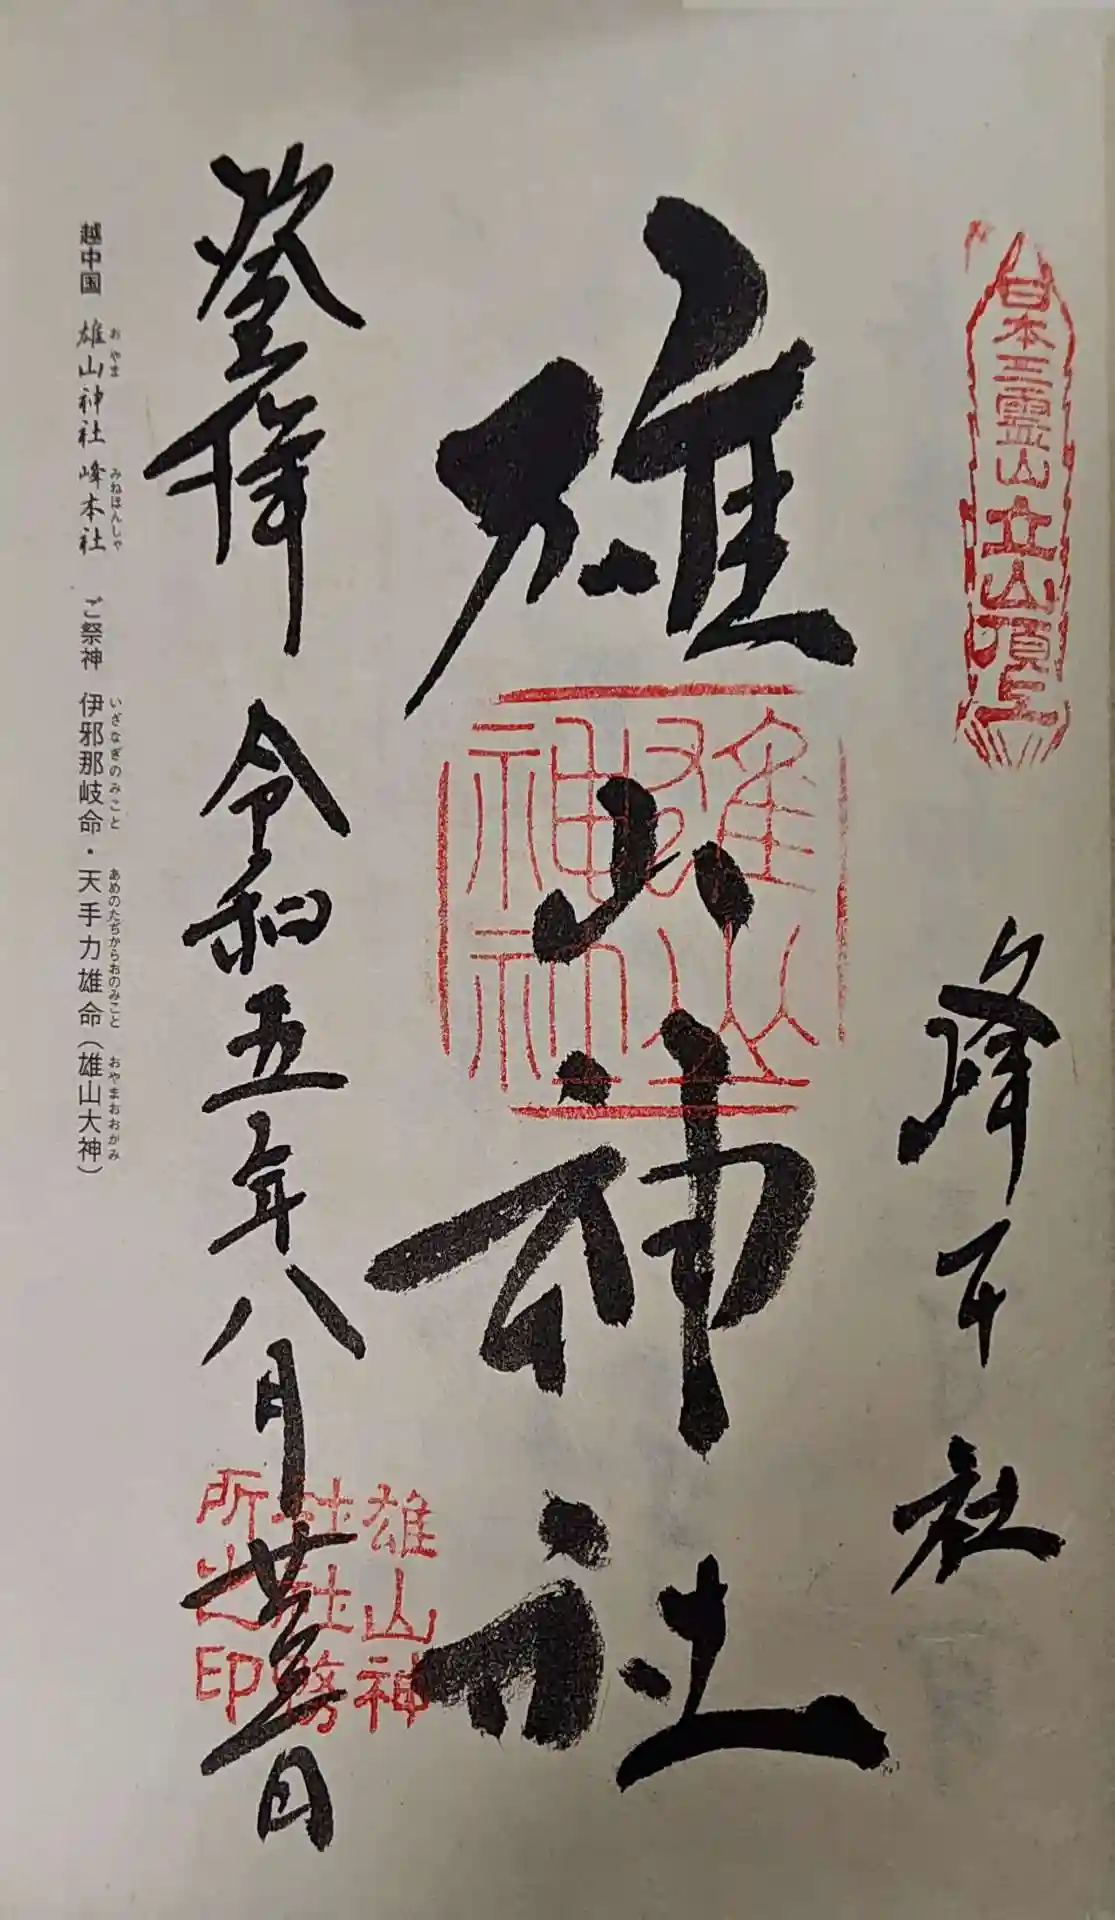 日本三霊山立山頂上
峰本社
雄山神社
雄山神社
雄山神社社務所之印
登拝 令和五年八月廿五日
越中国 雄山神社 峰本社 ご祭神 伊邪那岐命・天手力雄命（雄山大神）
おやま みねほんしゃ いざなぎのみこと あめのたぢからおのみこと おやまおおがみ